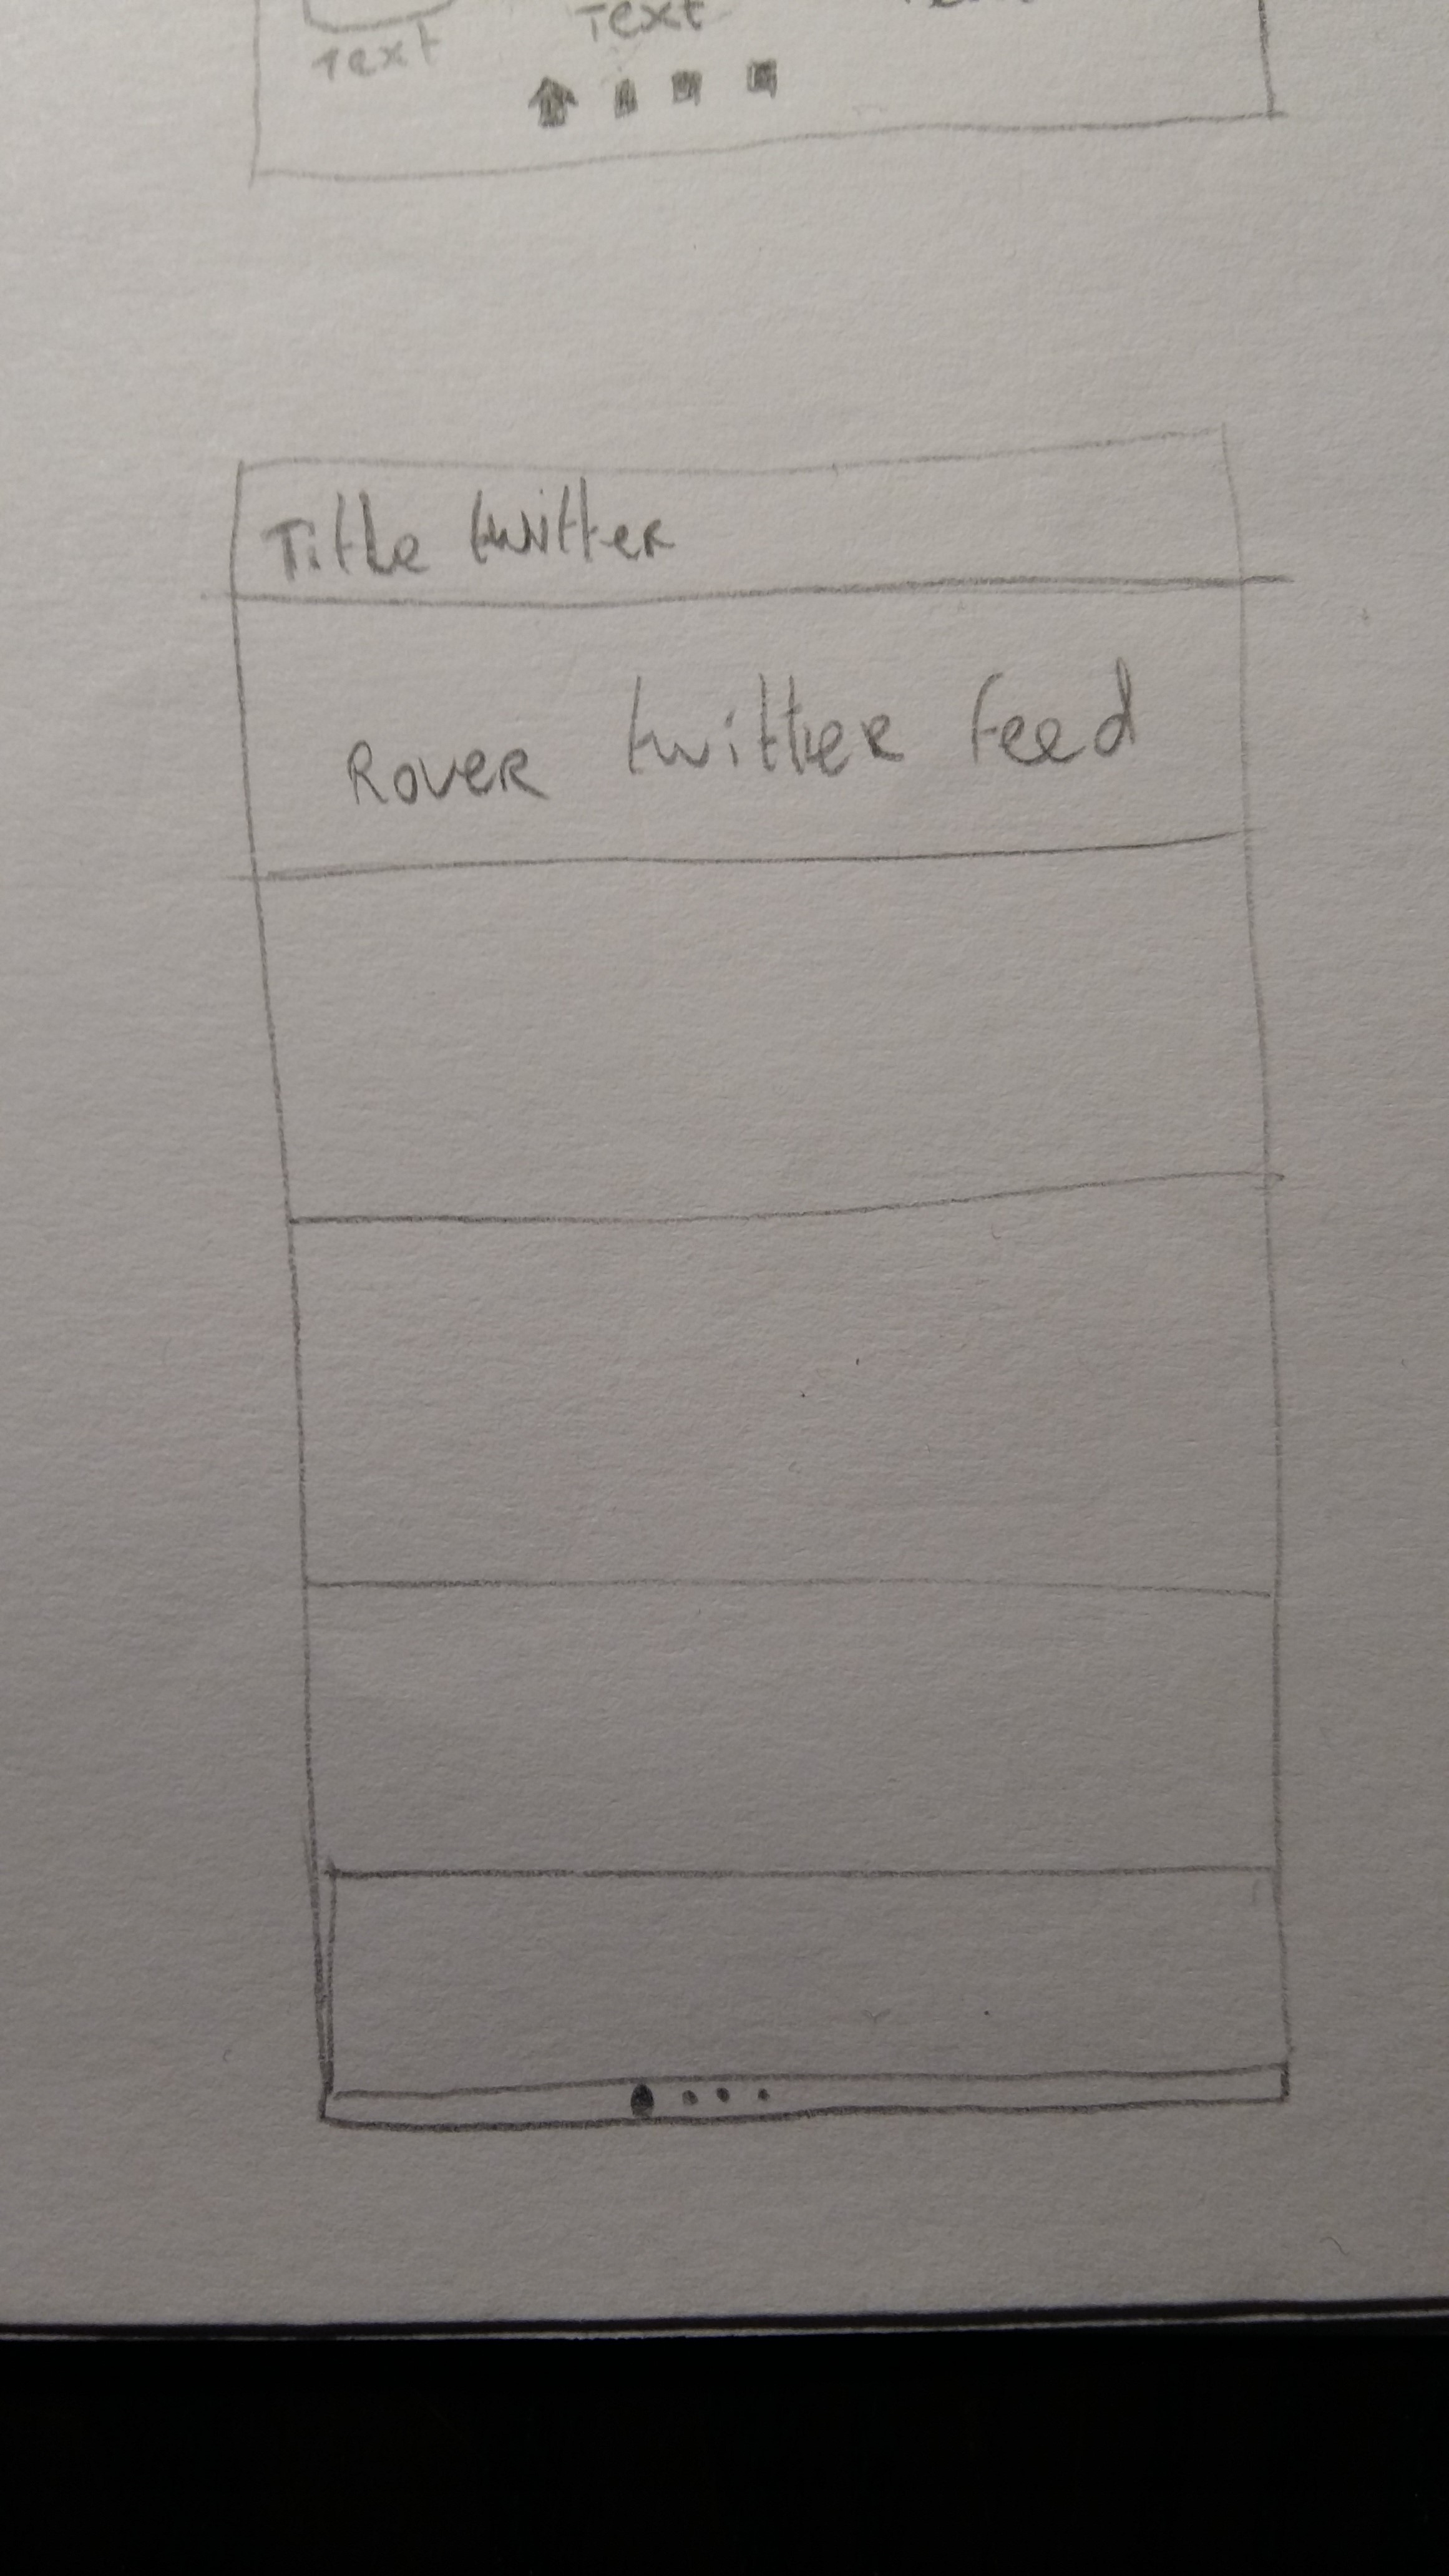 Text
Text
Title twitter
Rover twitter feed